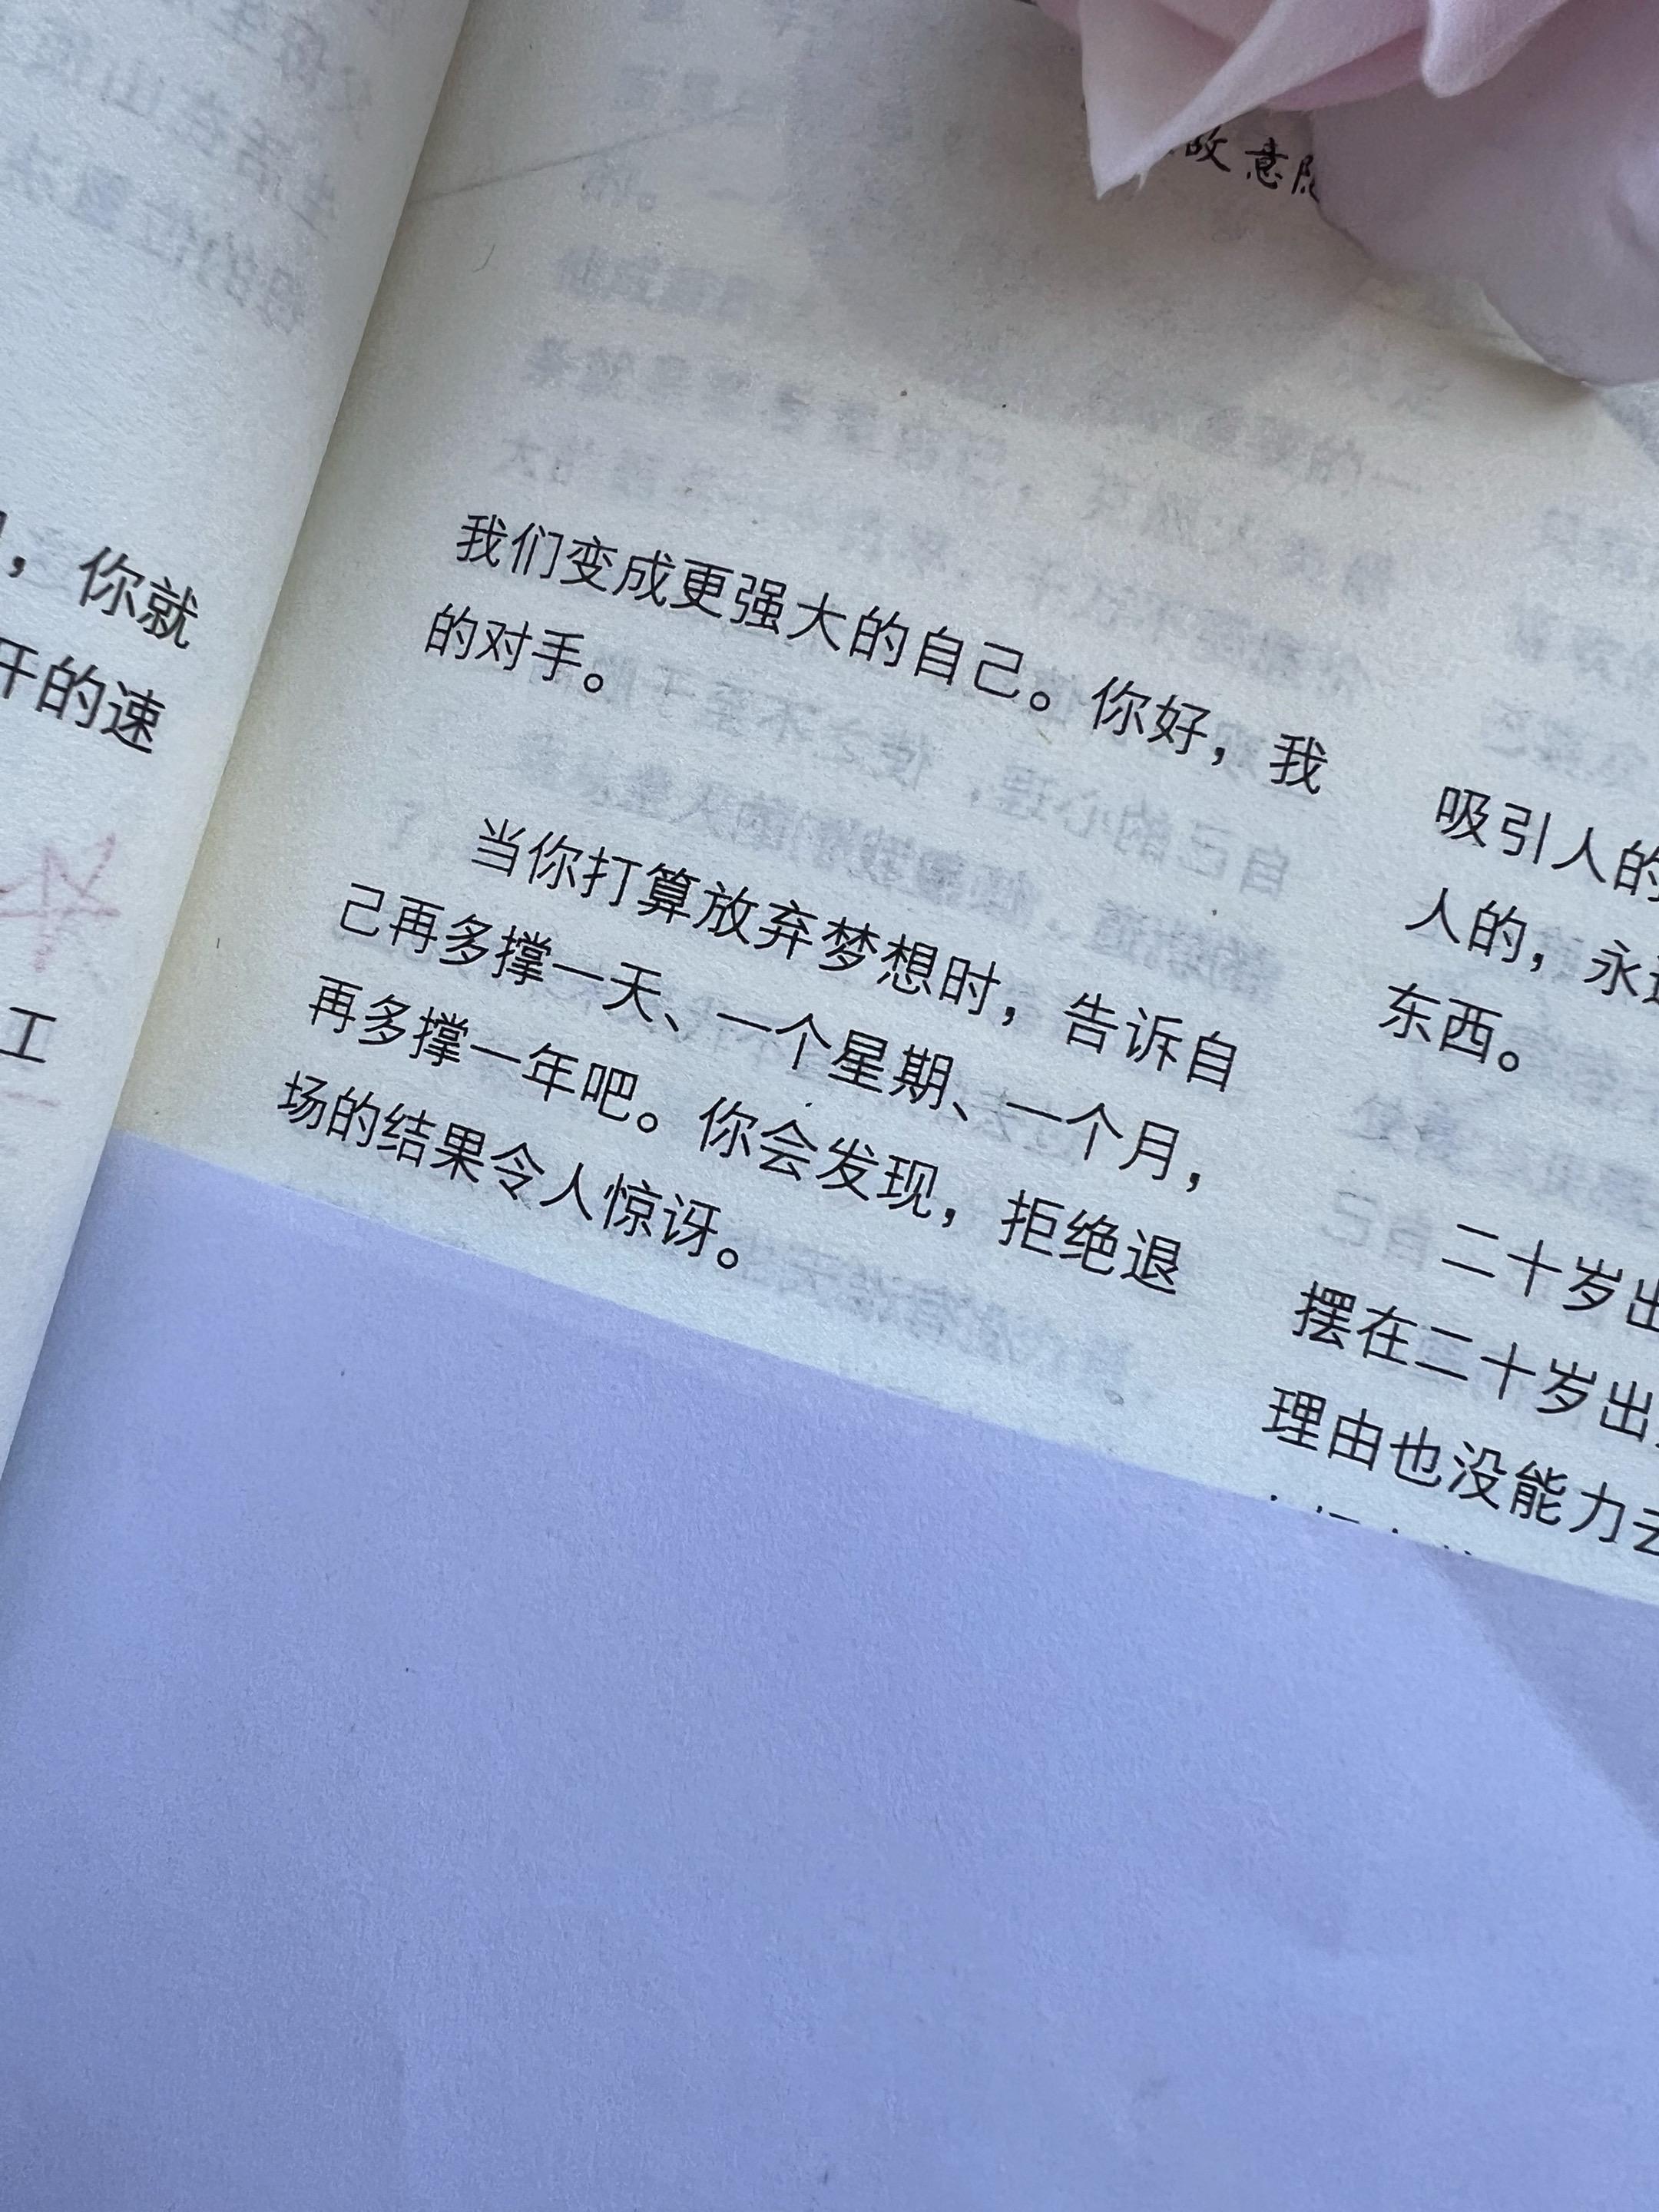 ，你就
的速
工
故意
我们变成更强大的自己。你好，我
的对手。
当你打算放弃梦想时，告诉自
己再多撑一天、一个星期、一个月，
再多撑一年吧。你会发现，拒绝退
场的结果令人惊讶。
吸引人的
人的，永
东西。
二十岁出
摆在二十岁出
理由也没能力去